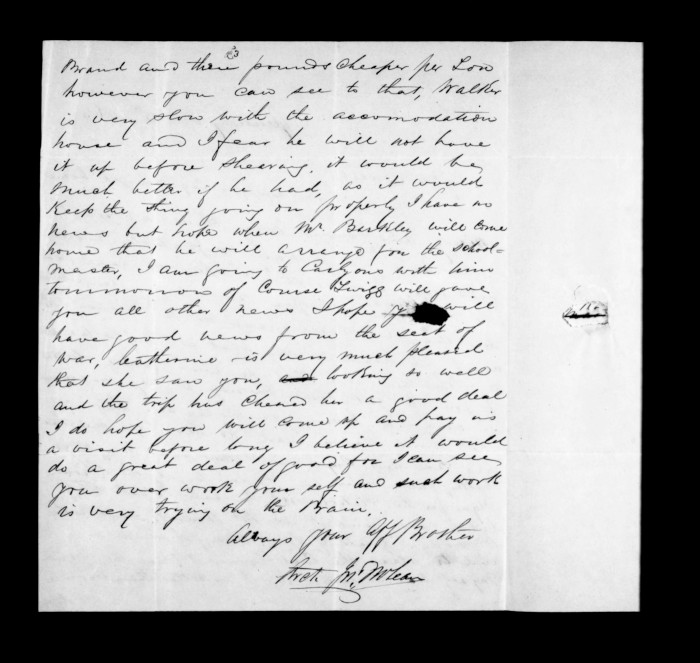 3
Brand and three pounds cheaper per Ton
however you can see to that, Walker
is very slow with the accomodation
house and I fear he will not have
it up before Shearing, it would be
much better if he had, as it would
Keep the thing going on properly I have no
news but hope when Mr. Barkley will come
home that he will arrange for the school-
master, I am going to with him
tommorrow of Course Twigg will gave
you all other news I hope will
have good news from the seat of
War, Catherine is very much pleased
that she saw you, and looking so well
and the trip has cheared her a good deal
I do hope you will come up and pay us
a visit before long I believe it would
do a great deal of good for I can see
you over work your self and such work
is very trying on the Brain.
Always your Aff Brother
Arch Jno. McLean